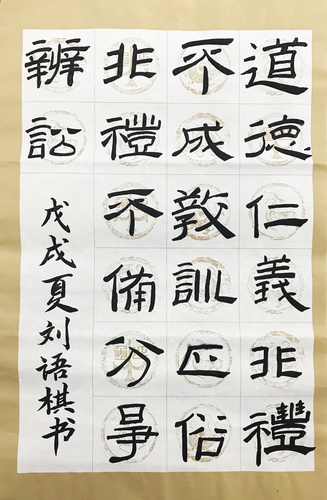 道德仁義非禮
不成教訓正俗
非禮不備分爭
辨訟
戊戌夏刘语棋书